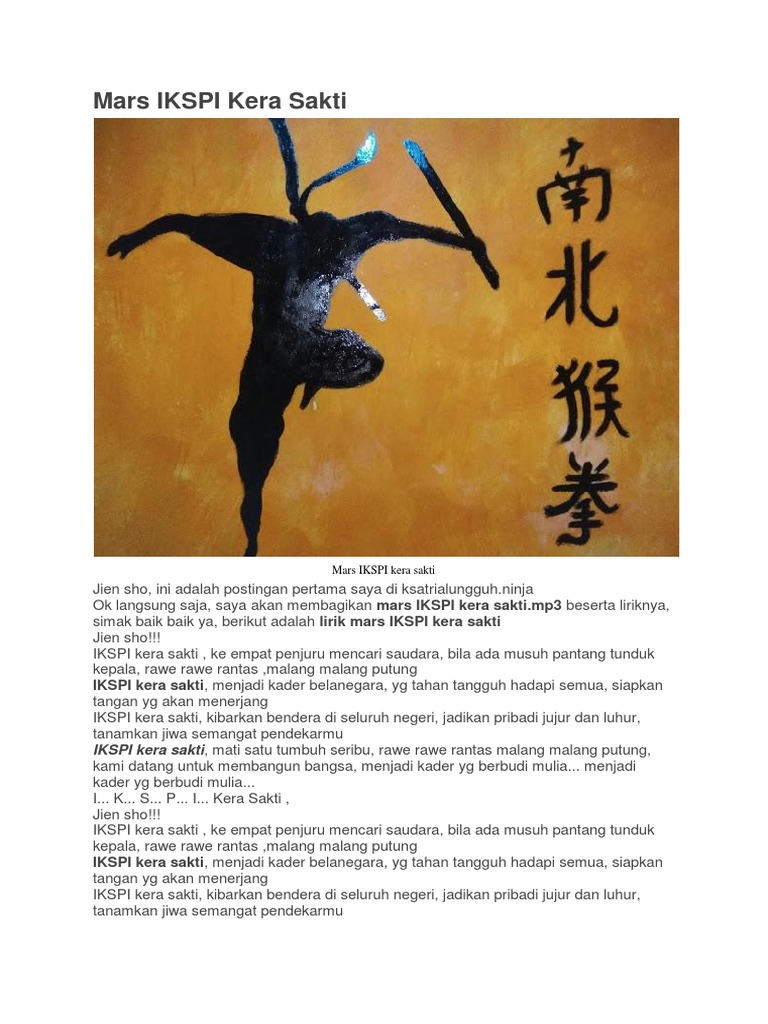 Mars IKSPI Kera Sakti
南
北
猴
拳
Mars IKSPI kera sakti
Jien sho, ini adalah postingan pertama saya di ksatrialungguh.ninja
Ok langsung saja, saya akan membagikan mars IKSPI kera sakti.mp3 beserta liriknya,
simak baik baik ya, berikut adalah lirik mars IKSPI kera sakti
Jien sho!!!
IKSPI kera sakti , ke empat penjuru mencari saudara, bila ada musuh pantang tunduk
kepala, rawe rawe rantas ,malang malang putung
IKSPI kera sakti, menjadi kader belanegara, yg tahan tangguh hadapi semua, siapkan
tangan yg akan menerjang
IKSPI kera sakti, kibarkan bendera di seluruh negeri, jadikan pribadi jujur dan luhur,
tanamkan jiwa semangat pendekarmu
IKSPI kera sakti, mati satu tumbuh seribu, rawe rawe rantas malang malang putung,
kami datang untuk membangun bangsa, menjadi kader yg berbudi mulia... menjadi
kader yg berbudi mulia...
I... K... S... P... I... Kera Sakti ,
Jien sho!!!
IKSPI kera sakti , ke empat penjuru mencari saudara, bila ada musuh pantang tunduk
kepala, rawe rawe rantas ,malang malang putung
IKSPI kera sakti, menjadi kader belanegara, yg tahan tangguh hadapi semua, siapkan
tangan yg akan menerjang
IKSPI kera sakti, kibarkan bendera di seluruh negeri, jadikan pribadi jujur dan luhur,
tanamkan jiwa semangat pendekarmu